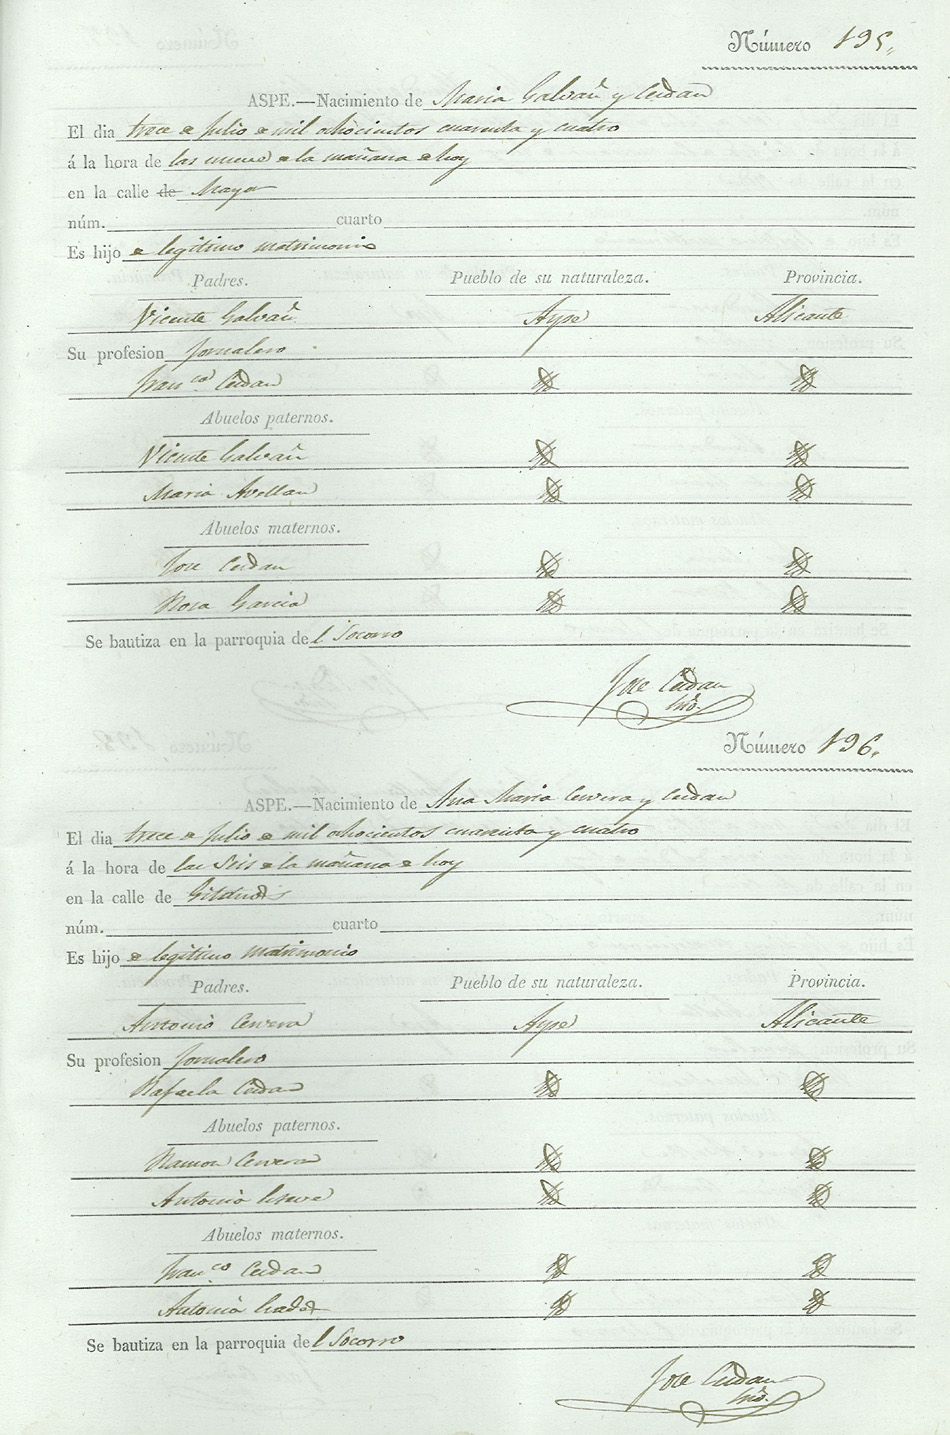 Número 195.
ASPE.—Nacimiento de Maria Galvañ y Cerdan
El dia trece de Julio de mil ochocientos cuarenta y cuatro
á la hora de las nueve de la mañana de hoy
en la calle de Mayor
núm. cuarto
Es hijo de legitimo matrimonio
Padres. Pueblo de su naturaleza. Provincia.
Vicente Galvañ Aspe Alicante
Su profesion Jornalero
Fran.ca Cerdan
Abuelos paternos.
Vicente Galvañ
Maria Avellan
Abuelos maternos.
Jose Cerdan
Rosa Garcia
Se bautiza en la parroquia del Socorro
Jose Cerdan
Número 196.
ASPE.—Nacimiento de Ana Maria Cervera y Cerdan
El dia trece de Julio de mil ochocientos cuarenta y cuatro
á la hora de las seis de la mañana de hoy
en la calle de
núm. cuarto
Es hijo de legitimo matrimonio
Padres. Pueblo de su naturaleza. Provincia.
Antonio Cervera Aspe Alicante
Su profesion Jornalero
Rafaela Cerdan
Abuelos paternos.
Ramon Cervera
Antonia
Abuelos maternos.
Fran.co Cerdan
Antonia
Se bautiza en la parroquia del Socorro
Jose Cerdan